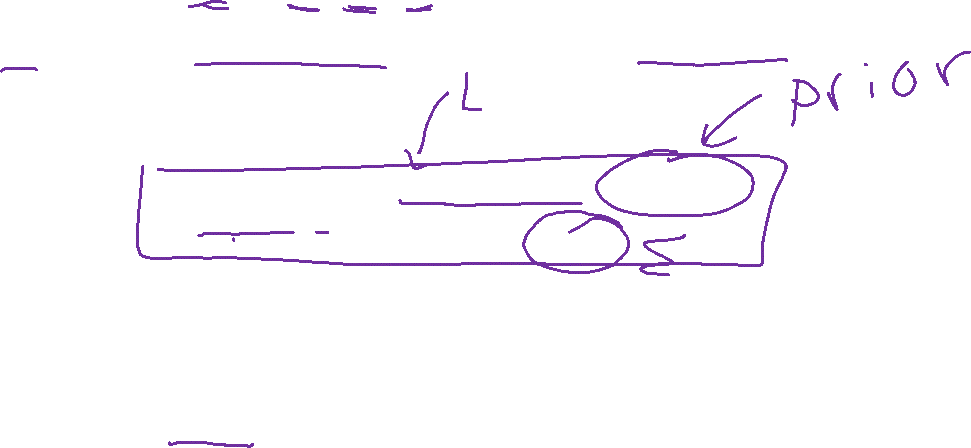 L
prior
Σ